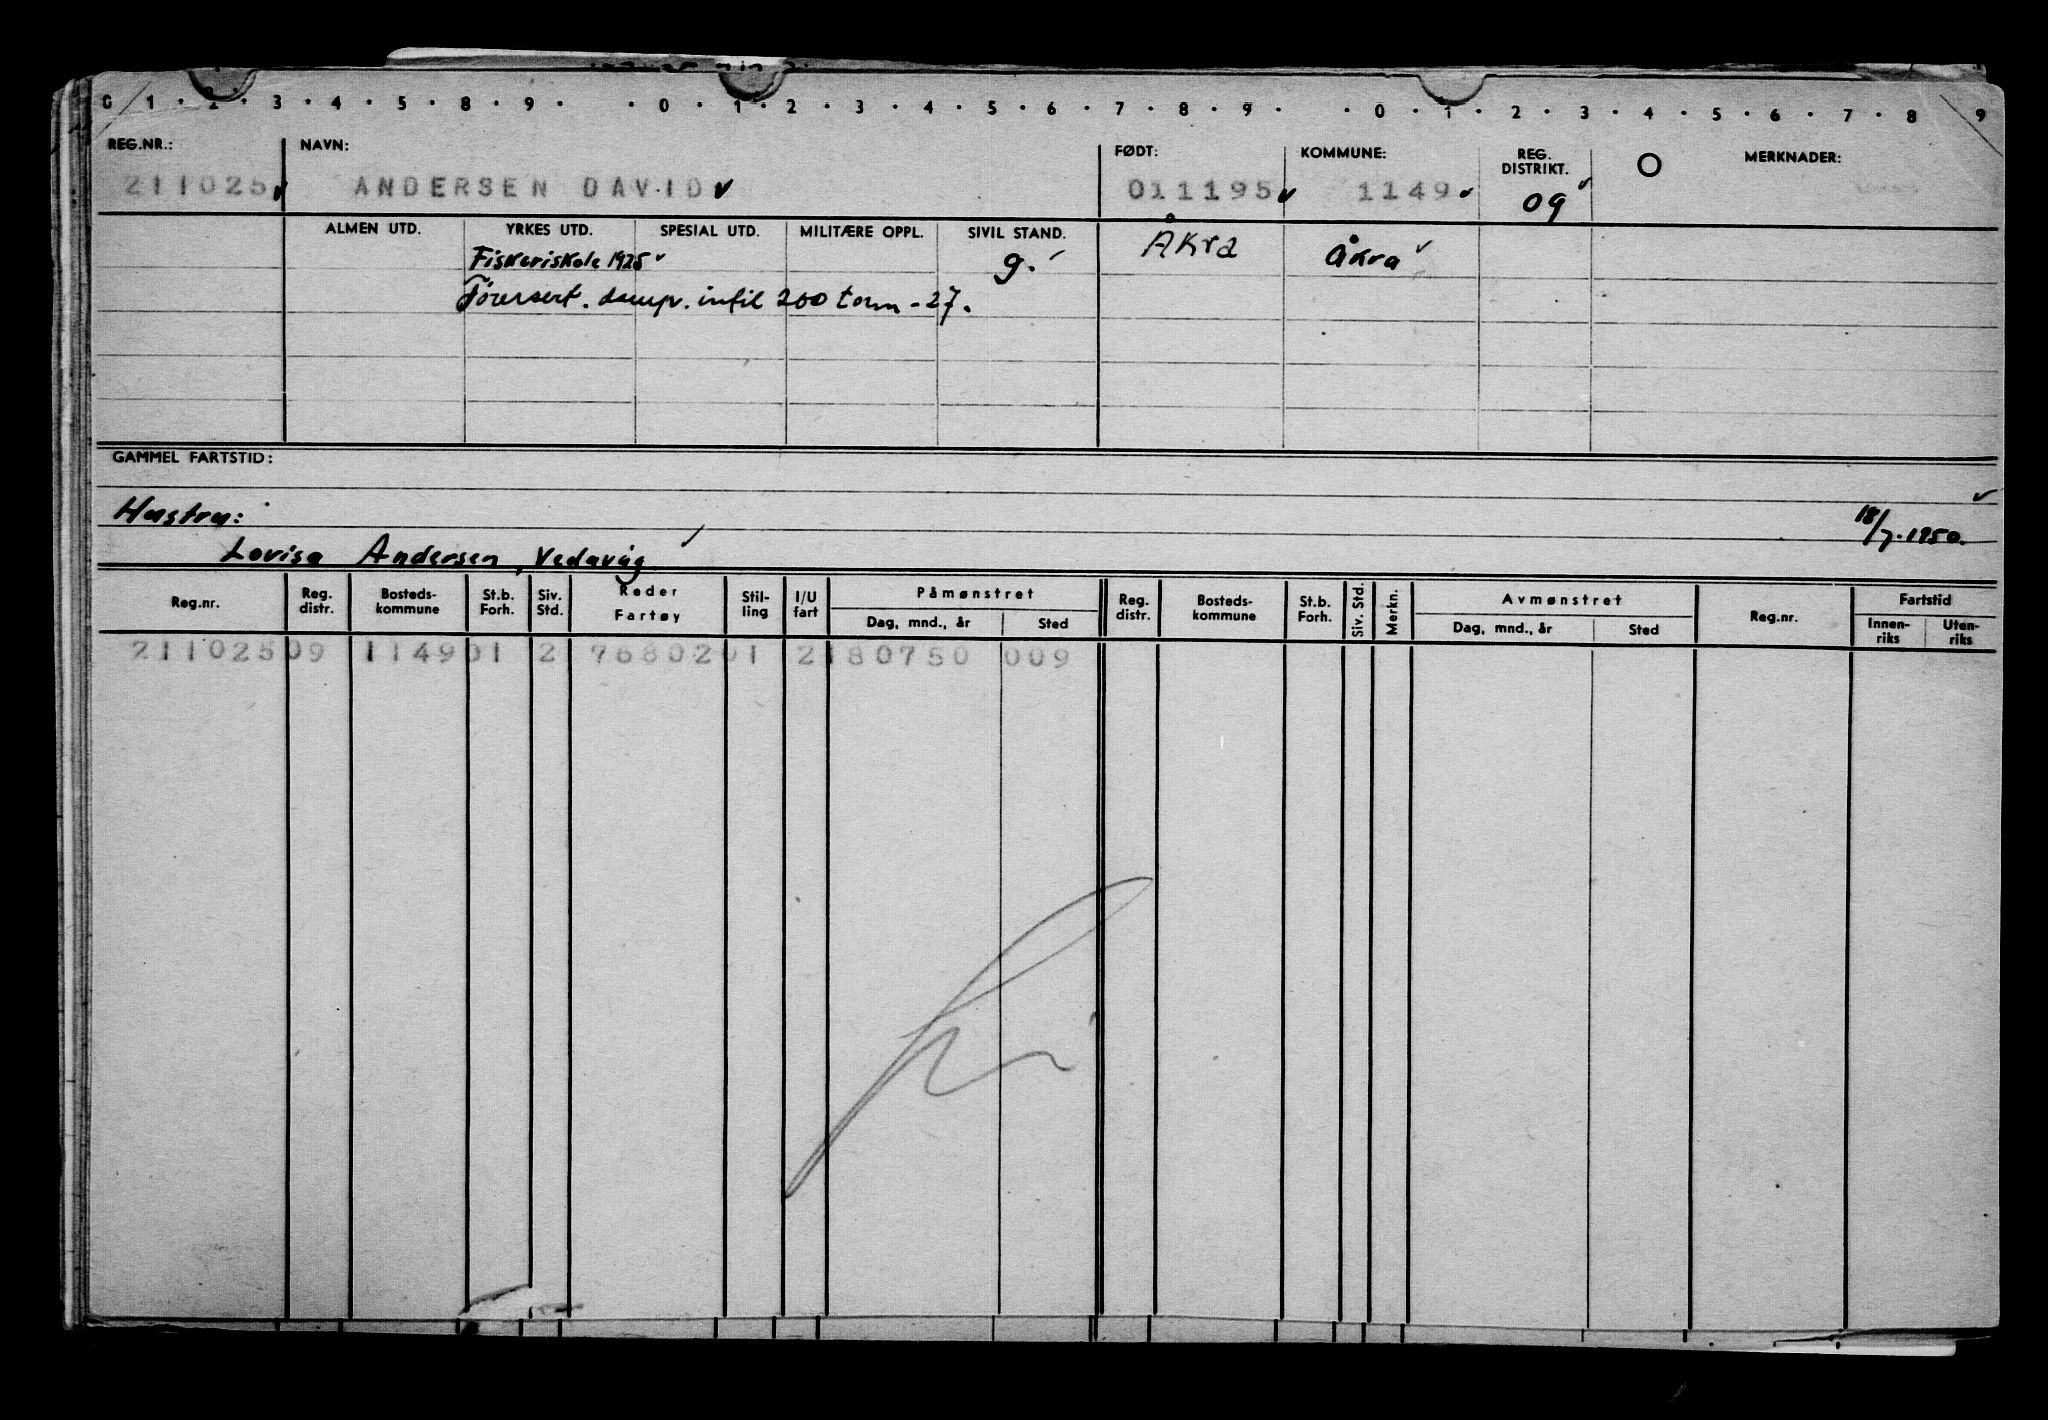 0 1 . 2 . 3 . 4 . 5 . 8 . 9 . . 0 . 1 . 2 . 3 . 4 . 5 . 6 . 7 . 8 . 9 . . 0 . 1 . 2 . 3 . 4 . 5 . 6 . 7 . 8 9
REG.NR.: NAVN: FØDT: KOMMUNE: REG. DISTRIKT. O MERKNADER:
211025 ANDERSEN DAVID 011195 1149 09
ALMEN UTD. YRKES UTD. SPESIAL UTD. MILITÆRE OPPL. SIVIL STAND. Åkra Åkra
Fiskeriskole 1925 g.
Förersert. damp. intil 200 tonn - 27.
GAMMEL FARTSTID:
Hustru: 18/7. 1950.
Lovisa Andersen, Vedavåg
Reg.nr. Reg. distr. Bosteds-kommune St.b. Forh. Siv. Std. Reder Fartøy Stil-ling I/U fart Påmønstret Dag, mnd., år Sted Reg. distr. Bosteds-kommune St.b. Forh. Siv. Std. Merkn. Avmønstret Dag, mnd., år Sted Reg.nr. Fartstid Innen-riks Uten-riks
211025 09 1149 01 2 76802 01 2 180750 009